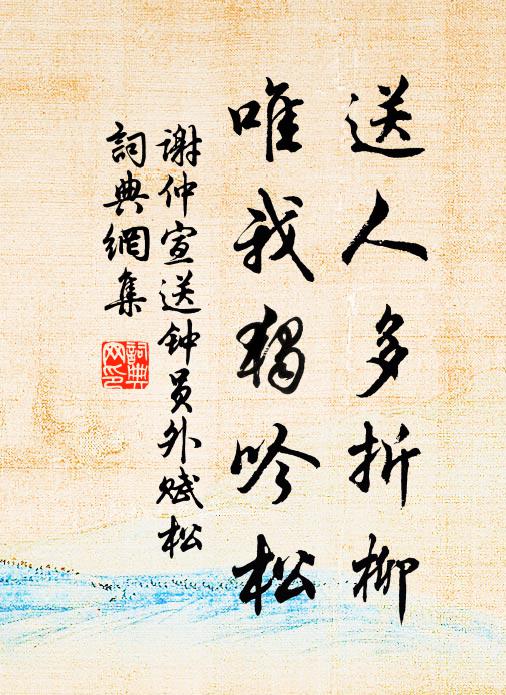 送人多折柳
唯我獨吟松
谢仲宣送钟员外赋松
詞典網集
詞典网印